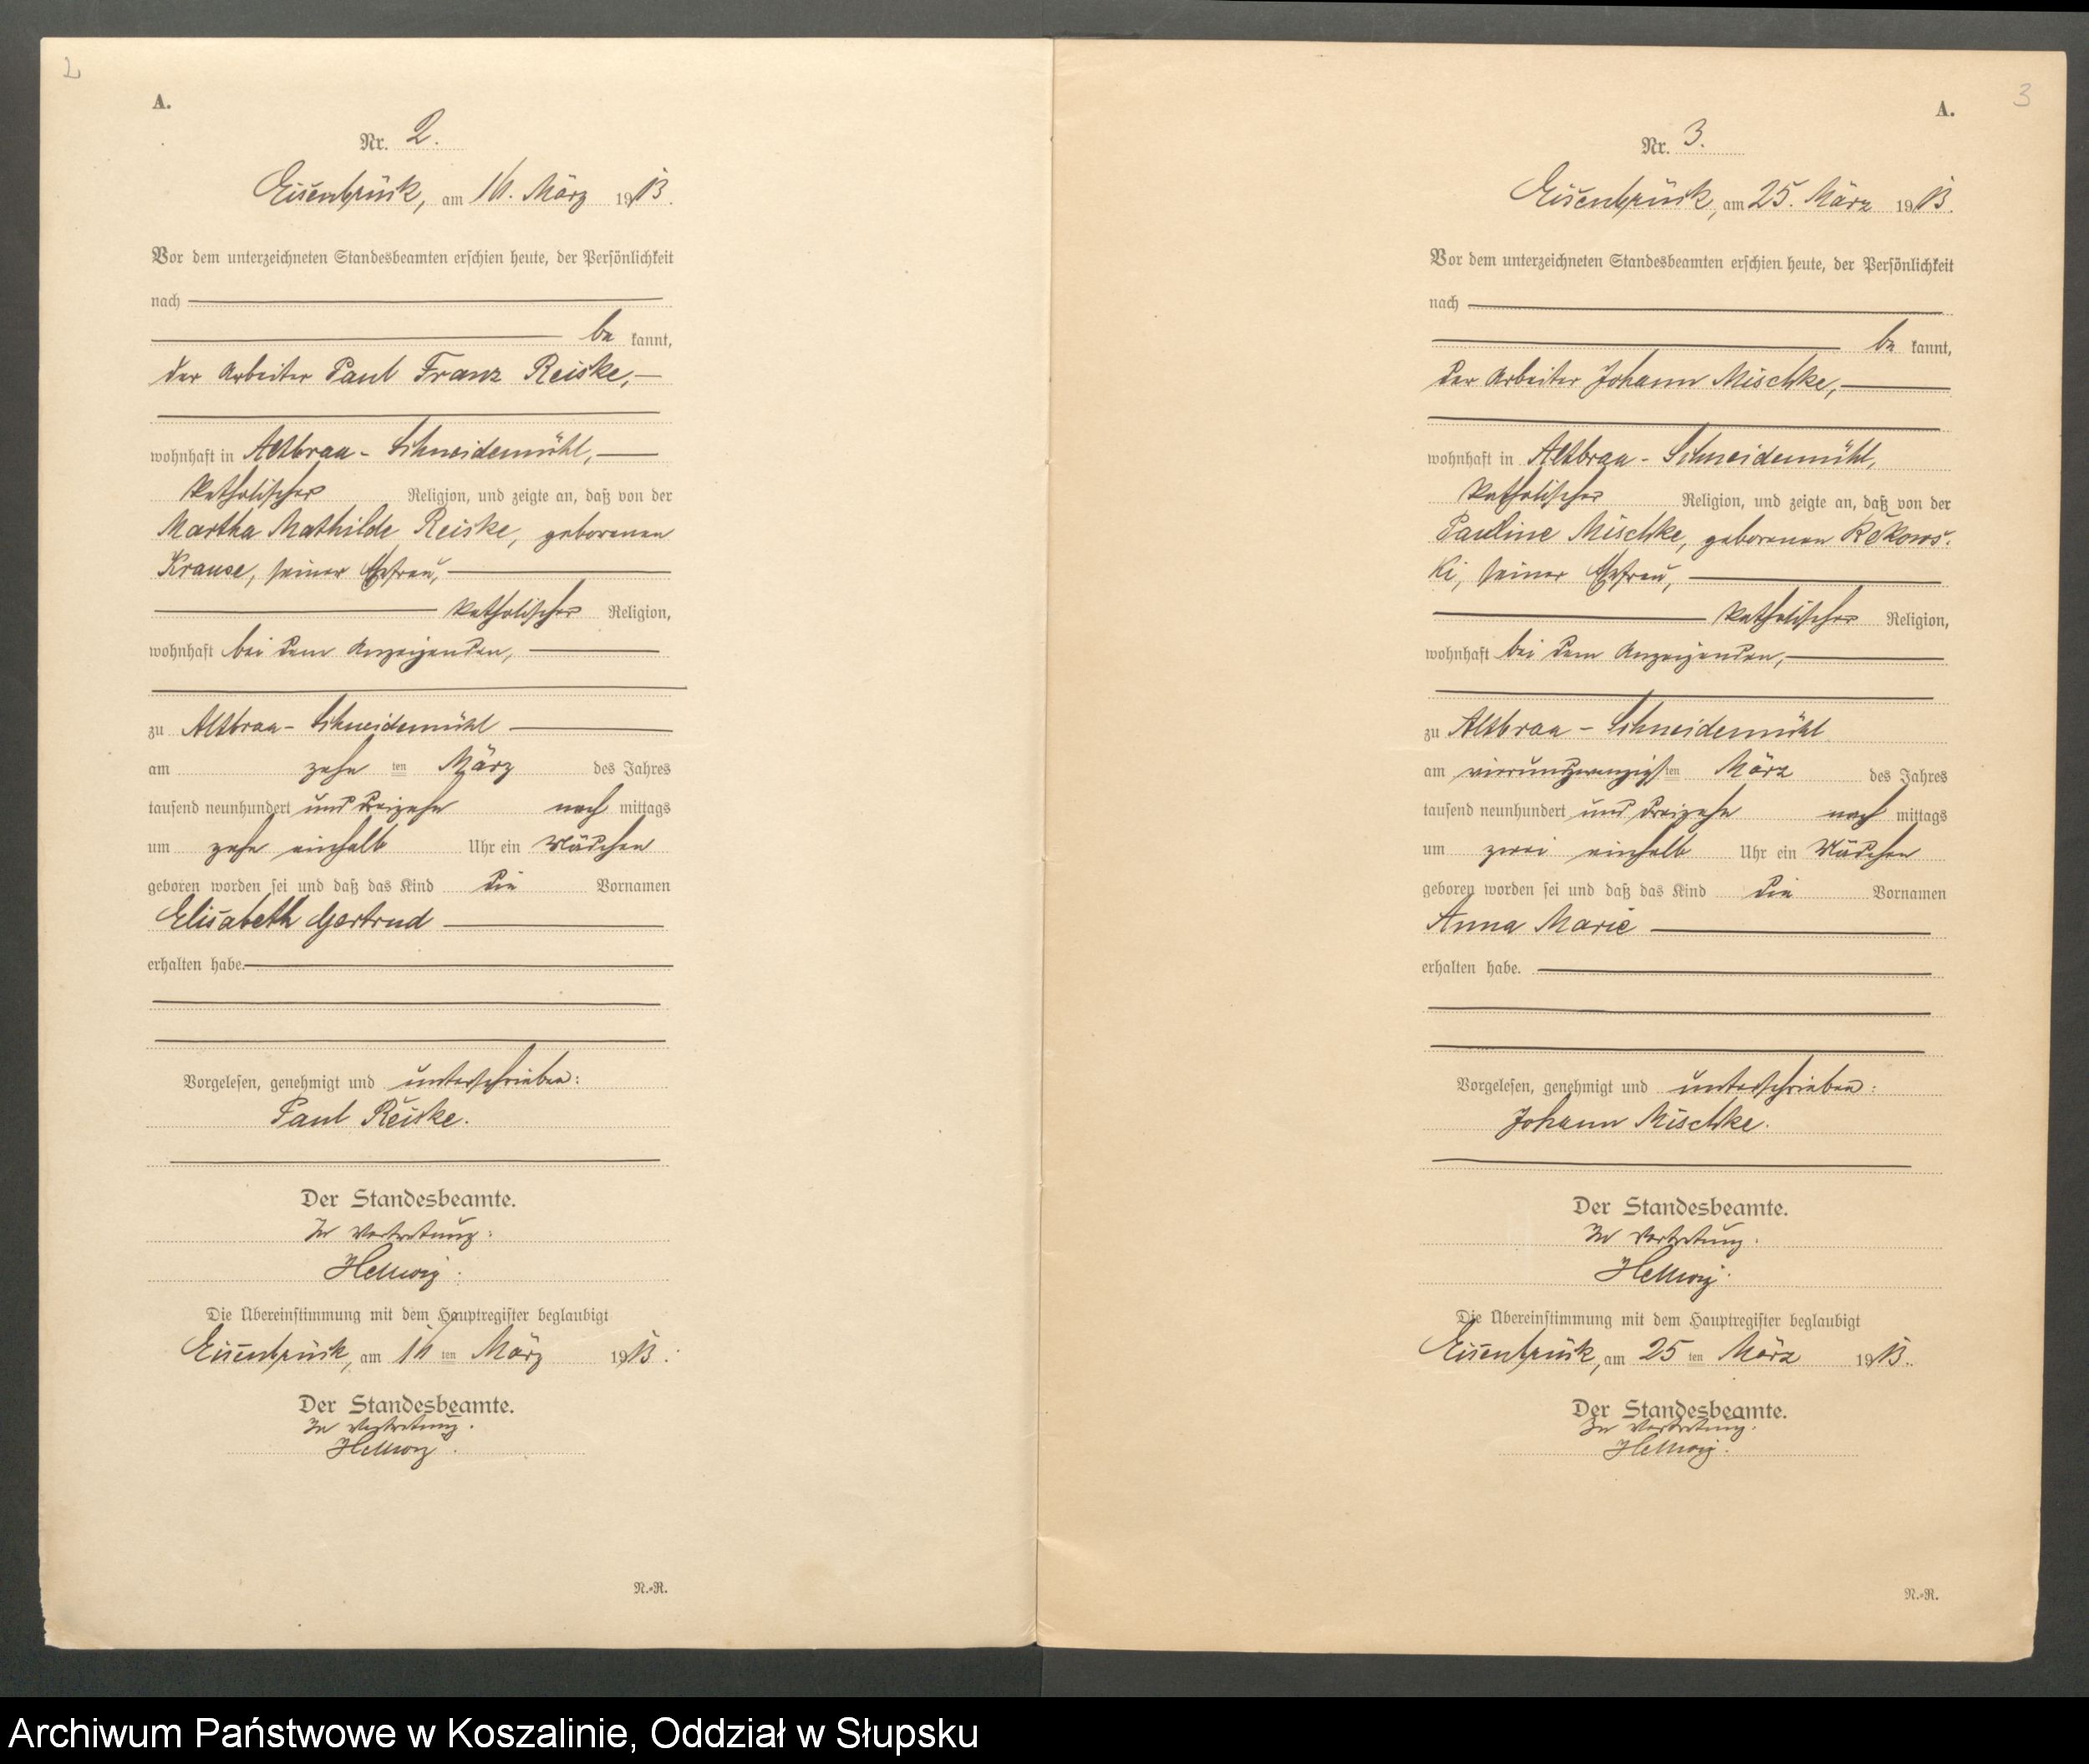 2
A.
Nr. 2.
Eisenbrück, am 14. März 1913.
Vor dem unterzeichneten Standesbeamten erschien heute, der Persönlichkeit
nach
be kannt,
der Arbeiter Paul Franz Reiske,
wohnhaft in Altbraa - Schneidemühl,
katholischer Religion, und zeigte an, daß von der
Martha Mathilde Reiske, geborenen
Krause, seiner Ehefrau,
katholischer Religion,
wohnhaft bei dem Anzeigenden,
zu Altbraa - Schneidemühl
am zehn ten März des Jahres
tausend neunhundert und dreizehn nach mittags
um zehn einhalb Uhr ein Mädchen
geboren worden sei und daß das Kind die Vornamen
Elisabeth Gertrud
erhalten habe.
Vorgelesen, genehmigt und unterschrieben:
Paul Reiske.
Der Standesbeamte.
In Vertretung:
Hellwig.
Die Übereinstimmung mit dem Hauptregister beglaubigt
Eisenbrück, am 14 ten März 1913.
Der Standesbeamte.
In Vertretung.
Hellwig.
N.-R.
3
A.
Nr. 3.
Eisenbrück, am 25. März 1913.
Vor dem unterzeichneten Standesbeamten erschien heute, der Persönlichkeit
nach
be kannt,
der Arbeiter Johann Mischke,
wohnhaft in Altbraa - Schneidemühl,
katholischer Religion, und zeigte an, daß von der
Pauline Mischke, geborenen Rekows-
ki, seiner Ehefrau,
katholischer Religion,
wohnhaft bei dem Anzeigenden,
zu Altbraa - Schneidemühl
am vierundzwanzigsten März des Jahres
tausend neunhundert und dreizehn nach mittags
um zwei einhalb Uhr ein Mädchen
geboren worden sei und daß das Kind die Vornamen
Anna Marie
erhalten habe.
Vorgelesen, genehmigt und unterschrieben:
Johann Mischke.
Der Standesbeamte.
In Vertretung.
Hellwig.
Die Übereinstimmung mit dem Hauptregister beglaubigt
Eisenbrück, am 25 ten März 1913.
Der Standesbeamte.
In Vertretung.
Hellwig.
N.-R.
Archiwum Państwowe w Koszalinie, Oddział w Słupsku